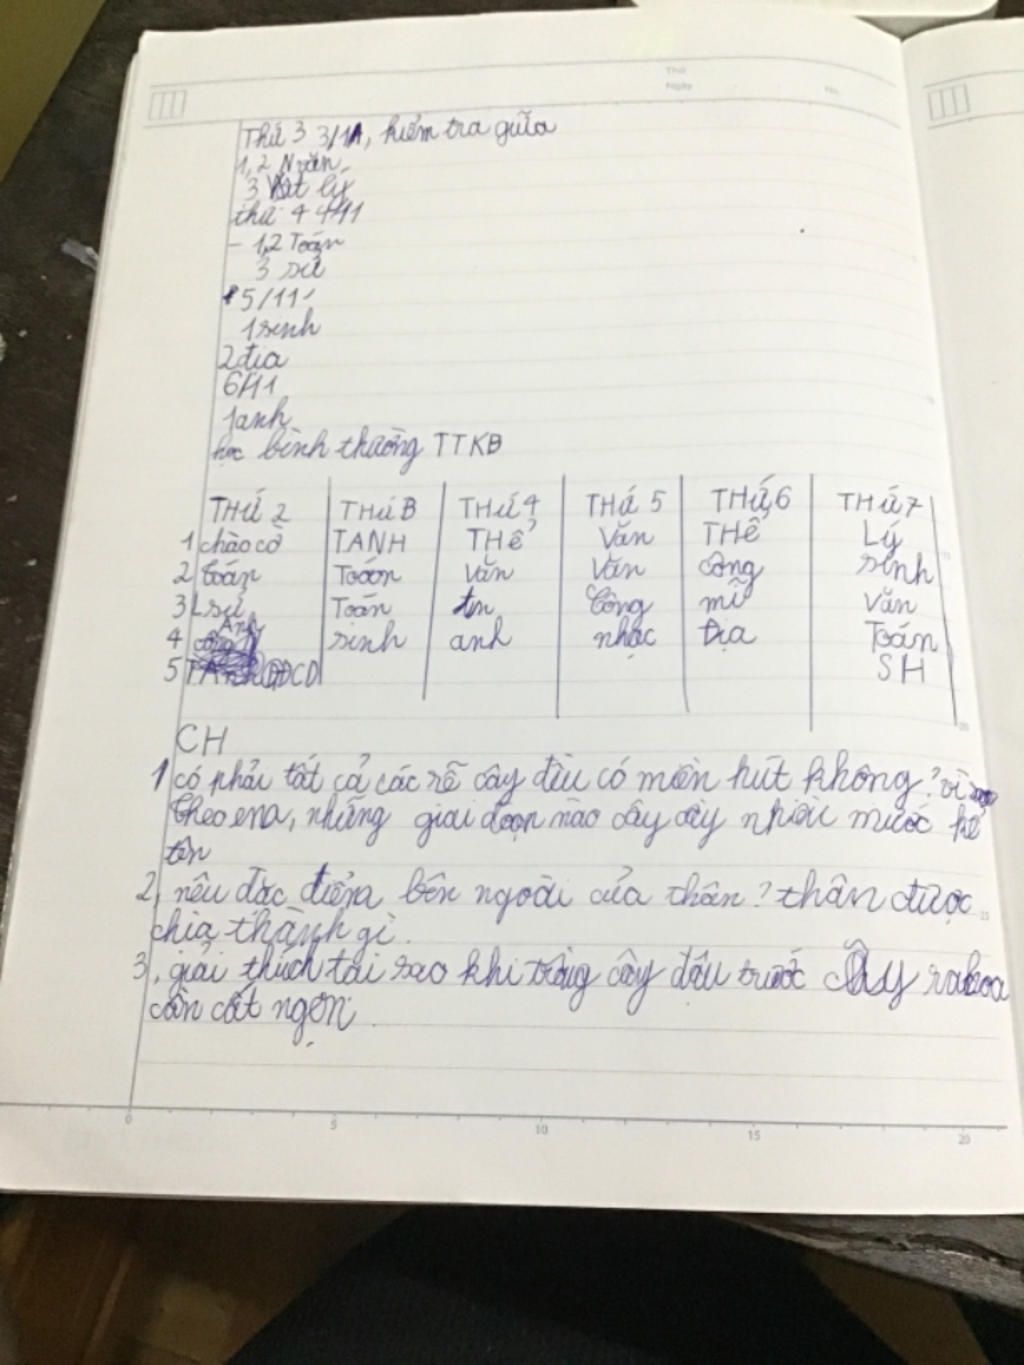 Thứ
Ngày
No.
Thứ 3 3/11, kiểm tra giữa
1,2 N văn
3 Vật lý
thứ 4 4/11
- 1,2 Toán
3 sử
5/11
1 sinh
2 địa
6/11
1 anh
học bình thường TTKB
THỨ 2 THỨ 3 THỨ 4 THỨ 5 THỨ 6 THỨ 7
1 chào cờ TANH THỂ Văn THỂ Lý
2 toán Toán Văn Văn công sinh
3 Lsử Toán tin Công mĩ Văn
4 Anh sinh anh nhạc Địa Toán
5 GDCD SH
CH
1 có phải tất cả các rễ cây đều có miền hút không? vì
theo em, những giai đoạn nào cây cây nhiều nước kể
tên
2, nêu đặc điểm bên ngoài của thân? thân được
chia thành gì.
3, giải thích tại sao khi trồng cây đậu trước cây ra hoa
cần cắt ngọn
0 5 10 15 20